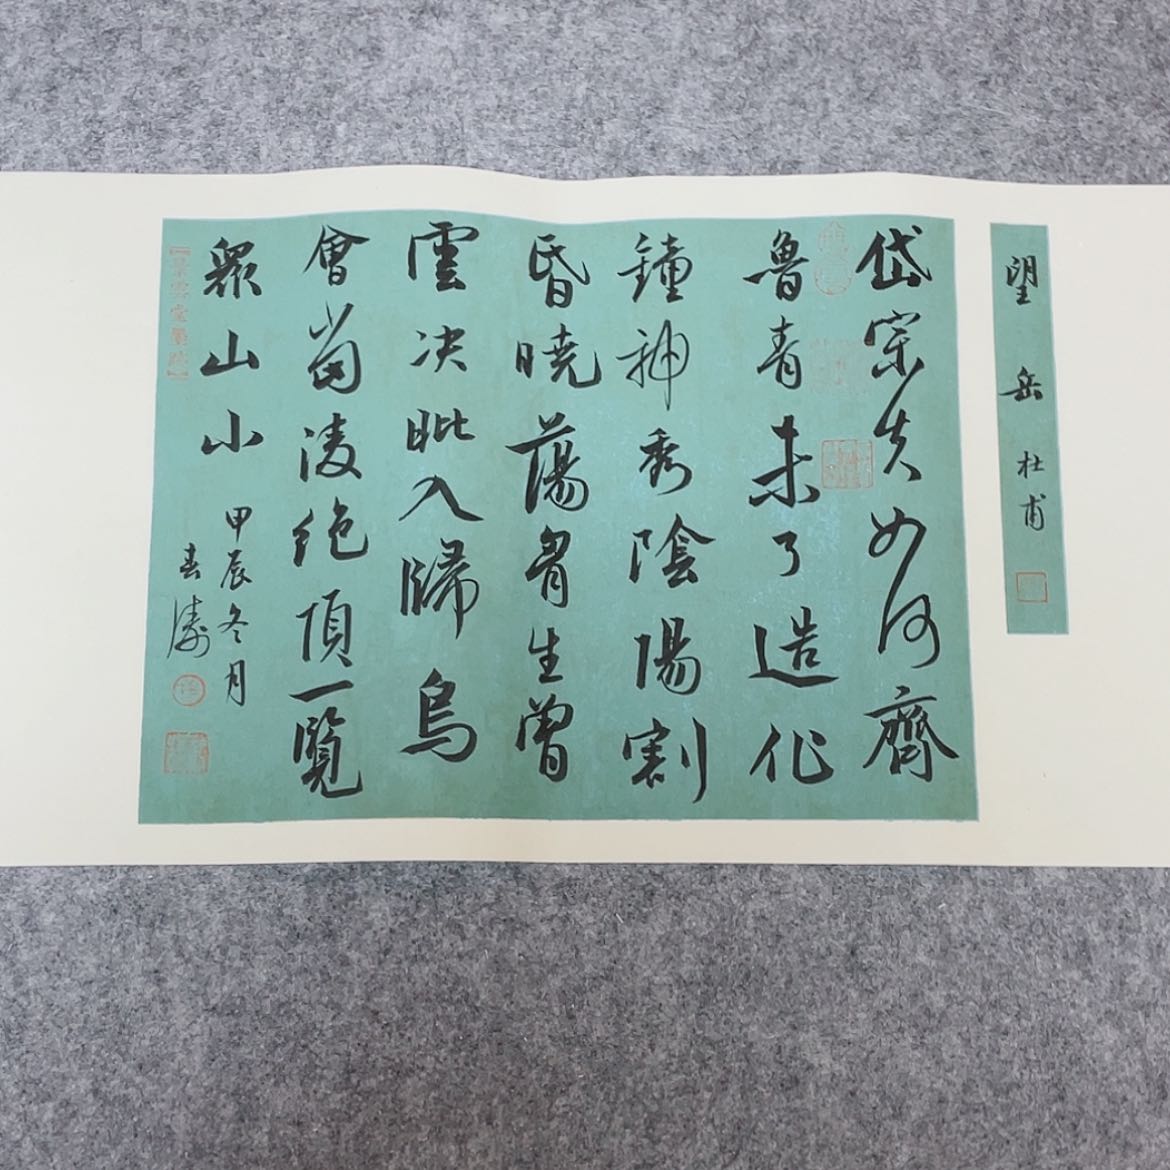 望岳 杜甫
岱宗夫如何齊
魯青未了造化
鐘神秀陰陽割
昏曉蕩胷生曾
雲决眦入歸鳥
會當凌絕頂一覽
眾山小
甲辰冬月
春濤